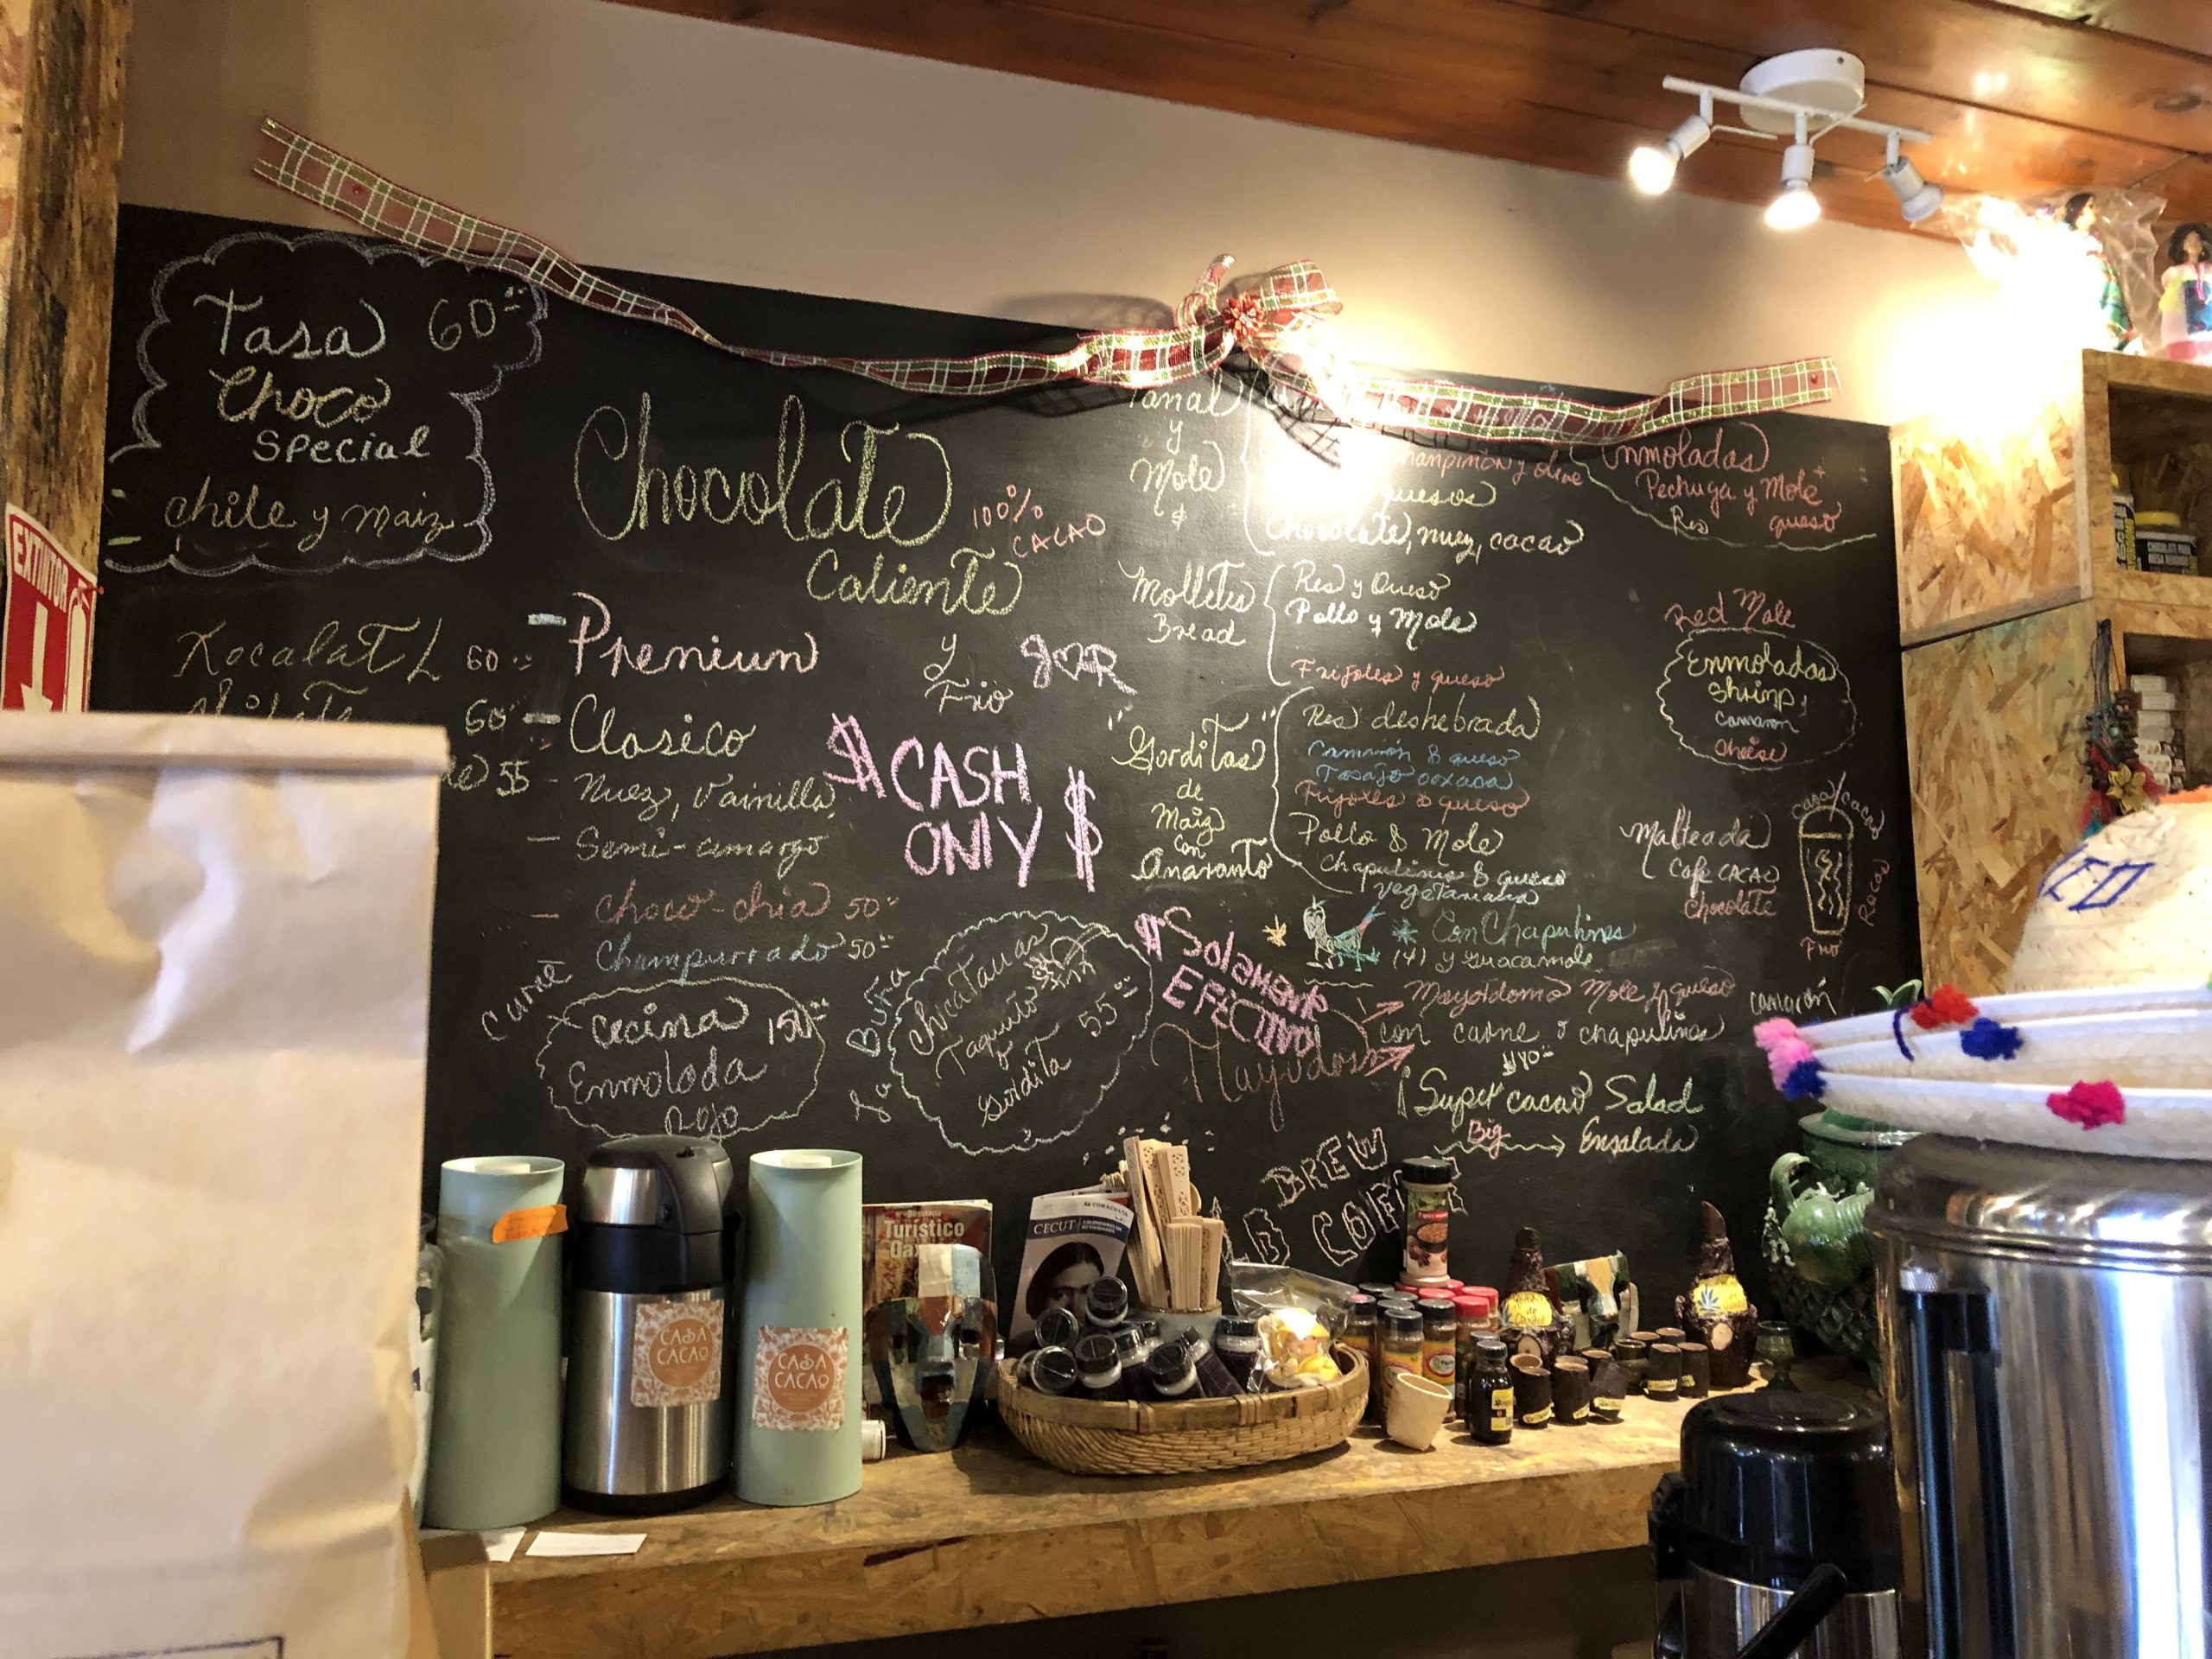 Tasa 60
Choco
special
chile y maiz
EXTINTOR
Xocalatl 60
60
55
Chocolate
100%
CACAO
Caliente
y
Frio
Premium
Clasico
Nuez, Vainilla
Semi-amargo
choco-chia 50
Champurrado 50
$ CASH
ONLY $
Carne
Cecina 150
Enmolada
Rojo
Chicatanas
Taquito
y
Gordita
55
y
Mole
$
quesos
Chocolate, nuez, cacao
Molletes
Bread
Res y Queso
Pollo y Mole
Frijoles y queso
"Gorditas"
de
Maiz
con
Amaranto
Res deshebrada
Camarón & queso
Tasajo oaxaca
Frijoles & queso
Pollo & Mole
Chapulines & queso
vegetariana
Con Chapulines
(4) y guacamole
$ Solamente
EFECTIVO
Mayordomo Mole y queso
con carne & chapulines
¡Super cacao Salad
Big
Ensalada
BREW
Enmoladas
Pechuga y Mole
Res queso
Red Mole
Enmoladas
Shrimp
camaron
cheise
Malteada
Cafe CACAO
Chocolate
Casa/Cacao
Frio
camarón
Turístico
CECUT
CASA
CACAO
CASA
CACAO